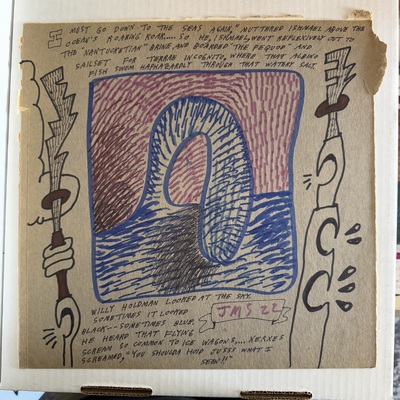 I MUST GO DOWN TO THE SEAS AGAIN," MUTTERED ISHMAEL ABOVE THE
OCEAN'S ROARING ROAR.... SO HE, ISHMAEL, WENT REFLEXIVELY OUT TO
THE "NANTUCKETIAN" BRINE, AND BOARDED "THE PEQUOD" AND
SAILSET FOR TERRAE INCOGNITO, WHERE THAT ALBINO
FISH SWUM HAPHAZARDLY THROUGH THAT WATERY SALT.
WILLY HOLDMAN LOOKED AT THE SKY.
SOMETIMES IT LOOKED
BLACK--SOMETIMES BLUE.
HE HEARD THAT FLYING
SCREAM SO COMMON TO ICE WAGONS,... XERXES
SCREAMED, "YOU SHOULDA HOID WHAT I
SEEN!!"
JMS 22